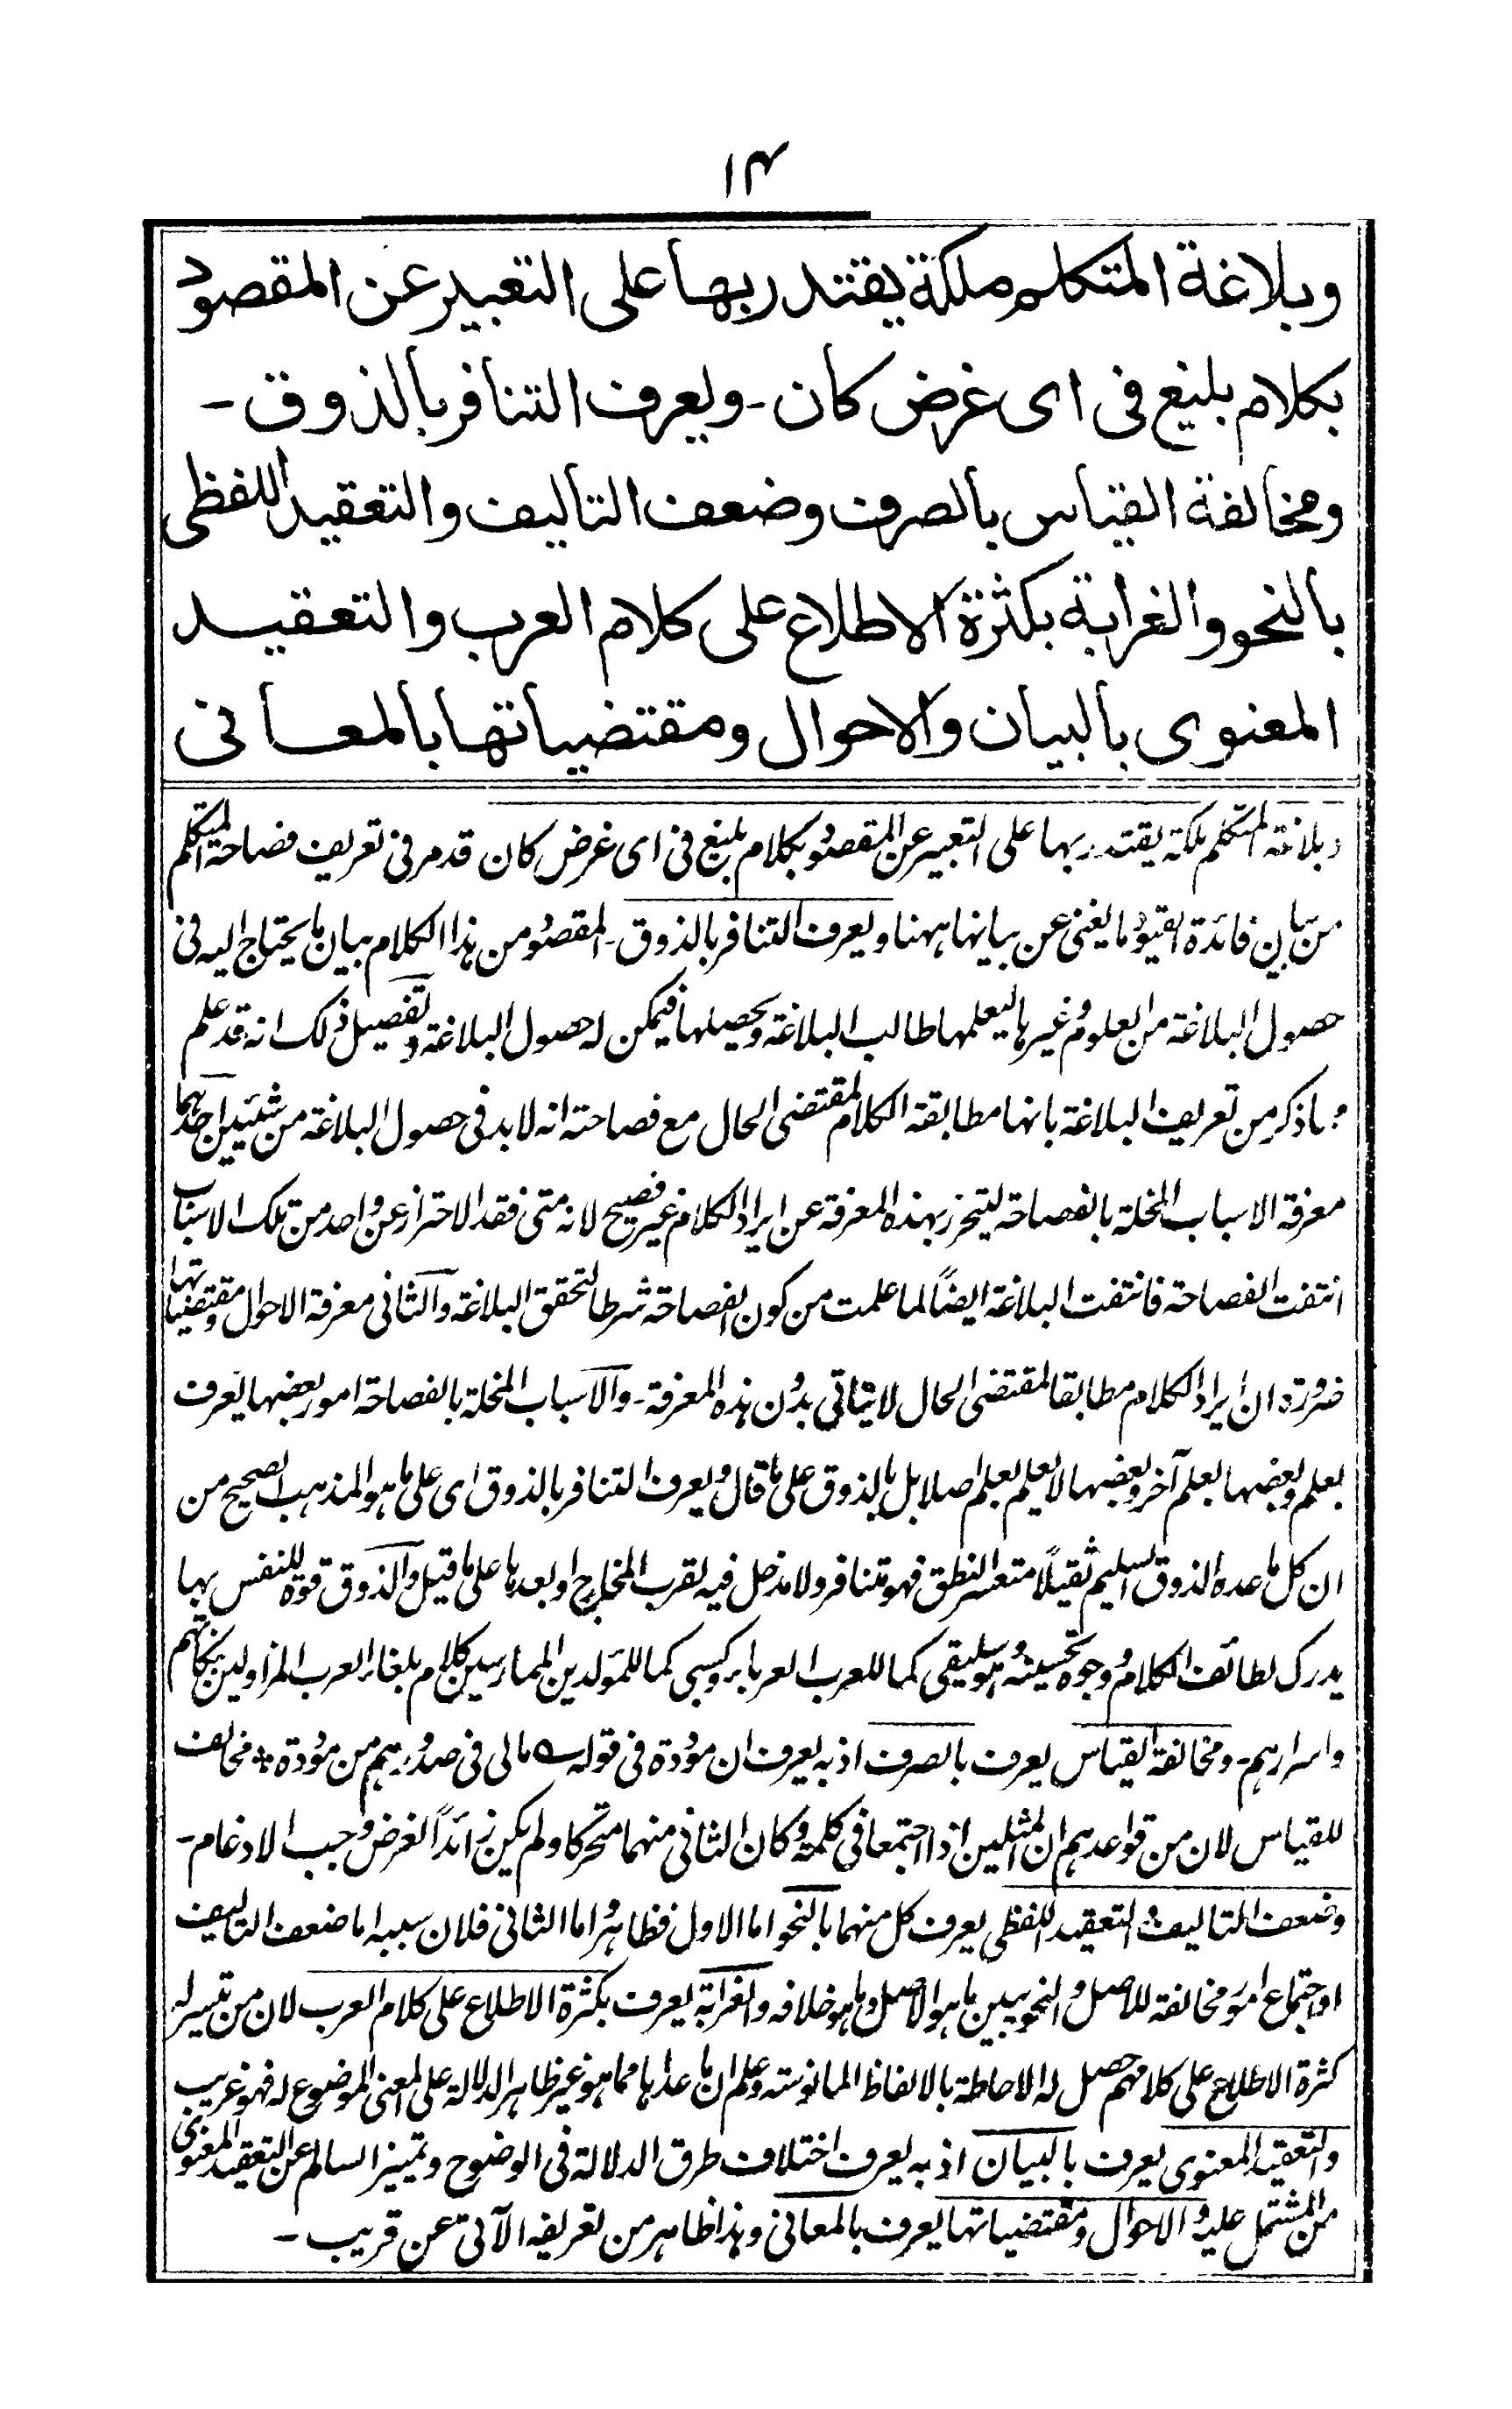 ۱۴
وبلاغة المتكلم ملكة يقتدر بها على التعبير عن المقصود
بكلام بليغ فى اى غرض كان - ويعرف التنافر بالذوق -
ومخالفة القياس بالصرف وضعف التاليف والتعقيد اللفظى
بالنحو والغرابة بكثرة الاطلاع على كلام العرب والتعقيد
المعنوى بالبيان والاحوال ومقتضياتها بالمعانى
وبلاغة المتكلم ملكة يقتدر بها على التعبير عن المقصود بكلام بليغ فى اى غرض كان قد مر فى تعريف فصاحة المتكلم
من بيان فائدة القيود ما يغنى عن بيانها ههنا ويعرف التنافر بالذوق - المقصود من هذا الكلام بيان ما يحتاج اليه فى
حصول البلاغة من العلوم وغيرها ليعلمها طالب البلاغة ويحصيلها فيمكن له حصول البلاغة وتفصيل ذلك انه قد علم
مما ذكر من تعريف البلاغة بانها مطابقة الكلام لمقتضى الحال مع فصاحته انه لا بد فى حصول البلاغة من شيئين احدهما
معرفة الاسباب المخلة بالفصاحة ليتحرز بهذه المعرفة عن ايراد الكلام غير فصيح لانه متى فقد الاحتراز عن واحد من تلك الاسباب
انتفت الفصاحة فانتفت البلاغة ايضًا لما علمت من كون الفصاحة شرطا لتحقق البلاغة والثانى معرفة الاحوال ومقتضياتها
ضرورة ان ايراد الكلام مطابقا لمقتضى الحال لا يتاتى بدون هذه المعرفة - والاسباب المخلة بالفصاحة امور بعضها يعرف
بعلم وبعضها بعلم آخر وبعضها لا يعلم بعلم اصلا بل بالذوق على ما قال ويعرف التنافر بالذوق اى على ما هو المذهب الصحيح من
ان كل ما عده الذوق السليم ثقيلًا متعسر النطق فهو متنافر ولا مدخل فيه لقرب المخارج او بعدها على ما قيل والذوق قوة للنفس بها
يدرك لطائف الكلام ووجوه تحسينه وهو سليقى كما للعرب العرباء وكسبى كما للمولدين الممارسين كلام بلغاء العرب المزاولين بنكاتهم
واسرارهم - ومخالفة القياس يعرف بالصرف اذ به يعرف ان موددة فى قوله ؎ مالى فى صدورهم من موددة ٭ مخالف
للقياس لان من قواعدهم ان المثلين اذا اجتمعا فى كلمة وكان الثانى منهما متحركا ولم يكن زائدًا لغرض وجب الادغام -
وضعف التاليف والتعقيد اللفظى يعرف كل منهما بالنحو اما الاول فظاهر واما الثانى فلان سببه اما ضعف التاليف
او اجتماع امور مخالفة للاصل والنحو يبين ما هو الاصل وما هو خلافه والغرابة يعرف بكثرة الاطلاع على كلام العرب لان من تيسر له
كثرة الاطلاع على كلامهم حصل له الاحاطة بالالفاظ المانوسته وعلم ان ما عداها مما هو غير ظاهر الدلالة على المعنى الموضوع له فهو غريب
والتعقيد المعنوى يعرف بالبيان اذ به يعرف اختلاف طرق الدلالة فى الوضوح وتميز السالم عن التعقيد المعنوى
من المشتمل عليه والاحوال ومقتضياتها يعرف بالمعانى وهذا ظاهر من تعريفه الآتى عن قريب -